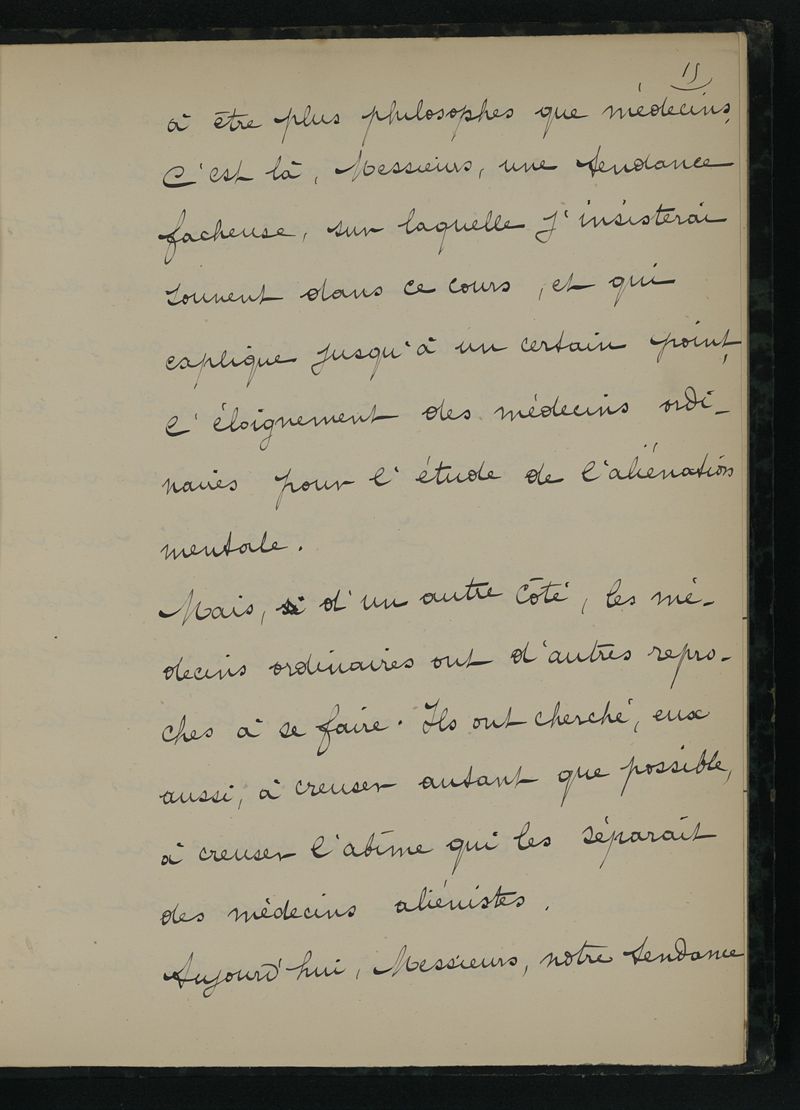 15
à être plus philosophes que médecins,
C'est là, Messieurs, une tendance
facheuse, sur laquelle j'insisterai
souvent dans ce cours, et qui
explique jusqu'à un certain point,
l'éloignement des médecins ordi-
naires pour l'étude de l'aliénation
mentale.
Mais, si d'un autre côté, les mé-
decins ordinaires ont d'autres repro-
ches à se faire. Ils ont cherché, eux
aussi, à creuser autant que possible,
à creuser l'abîme qui les séparait
des médecins aliénistes.
Aujourd'hui, Messieurs, notre tendance